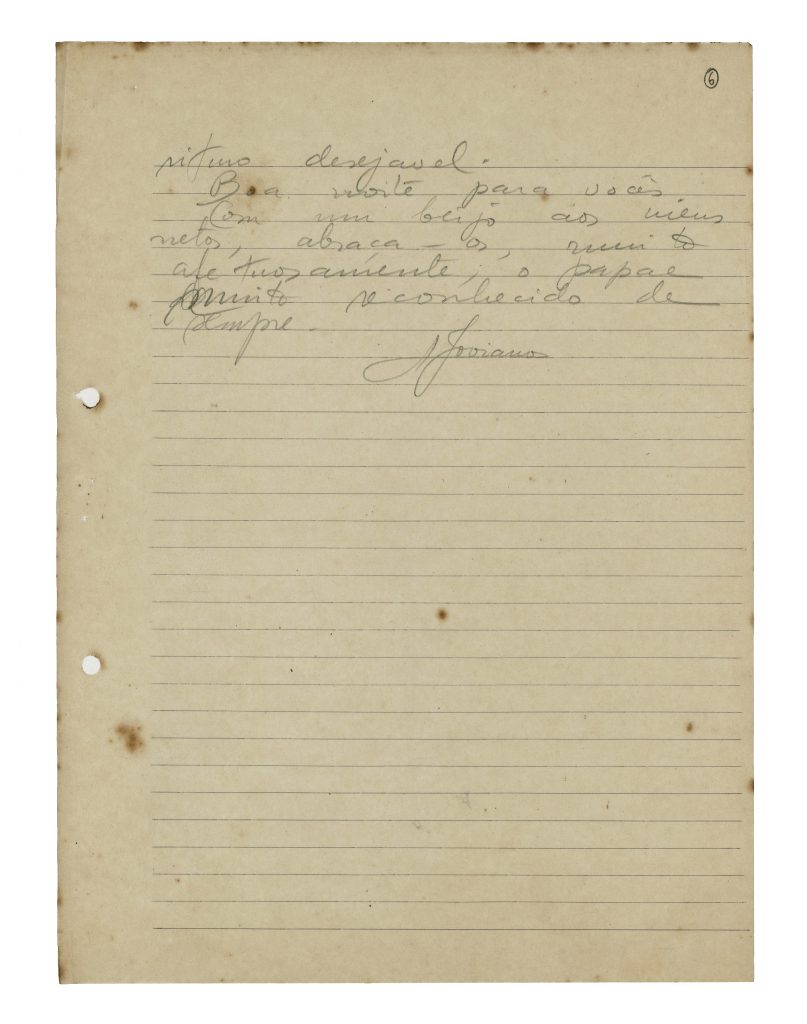 6
ritmo desejavel.
Boa noite para vocês
Com um beijo aos meus
netos, abraça-os, muito
afetuosamente, o papae
muito reconhecido de
sempre.
Joviano